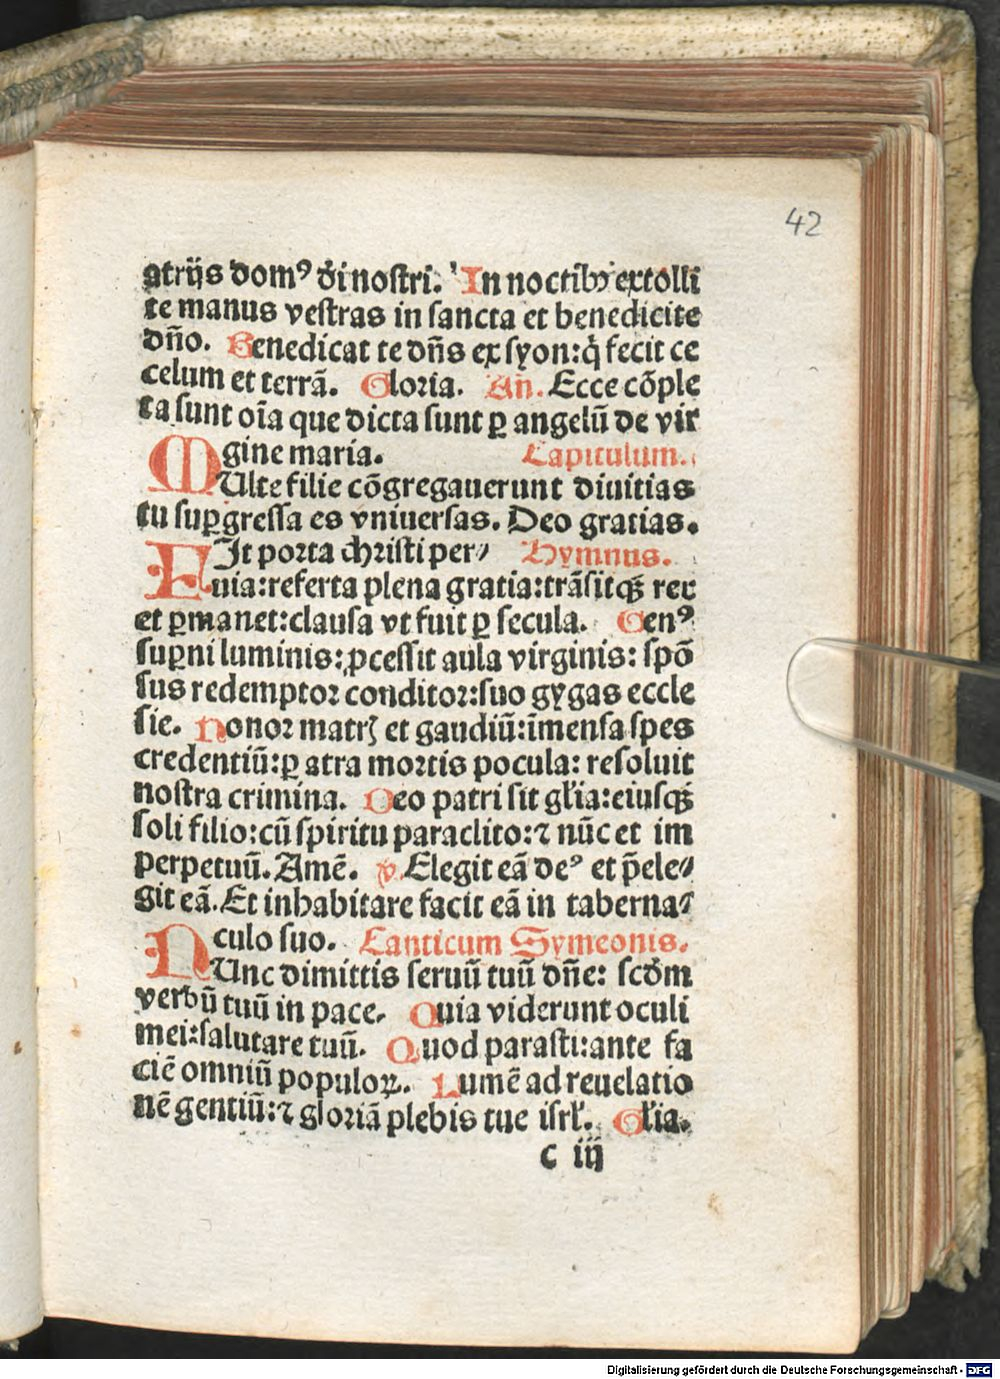 42
atrijs domꝰ di nostri. In noctibꝰ extolli
te manus vestras in sancta et benedicite
dño. Benedicat te dñs ex syon: q̇ fecit ce
celum et terrã. Gloria. Añ. Ecce cõple
ta sunt oĩa que dicta sunt ꝑ angelũ de vir
gine maria. Capitulum.
MUlte filie cõgregauerunt diuitias
tu suꝑgressa es vniuersas. Deo gratias.
FIt porta christi per⸗ Hymnus.
uia: referta plena gratia: trãsitqꝫ rex
et ꝑmanet: clausa vt fuit ꝑ secula. Genꝰ
suꝑni luminis: ꝓcessit aula virginis: spõ
sus redemptor conditor: suo gygas eccle
sie. Honor matrꝭ et gaudiũ: ĩmensa spes
credentiũ: ꝑ atra mortis pocula: resoluit
nostra crimina. Deo patri sit gľia: eiusqꝫ
soli filio: cũ spiritu paraclito: ⁊ nũc et im
perpetuũ. Amẽ. v. Elegit eã deꝰ et p̃ele⸗
git eã. Et inhabitare facit eã in taberna⸗
culo suo. Canticum Symeonis.
NUnc dimittis seruũ tuũ dñe: scdm
verbũ tuũ in pace. Quia viderunt oculi
mei: salutare tuũ. Quod parasti: ante fa
ciẽ omniũ populoꝝ. Lumẽ ad reuelatio
nẽ gentiũ: ⁊ gloriã plebis tue isrľ. Gľia.
c iij
Digitalisierung gefördert durch die Deutsche Forschungsgemeinschaft - DFG